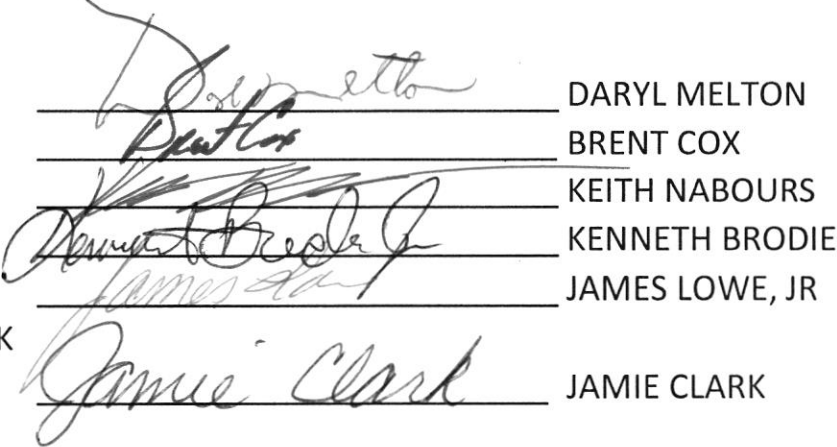 Daryl Melton DARYL MELTON
Brent Cox BRENT COX
KEITH NABOURS
Kenneth Brodie Jr KENNETH BRODIE
James Lowe JAMES LOWE, JR
K
Jamie Clark JAMIE CLARK